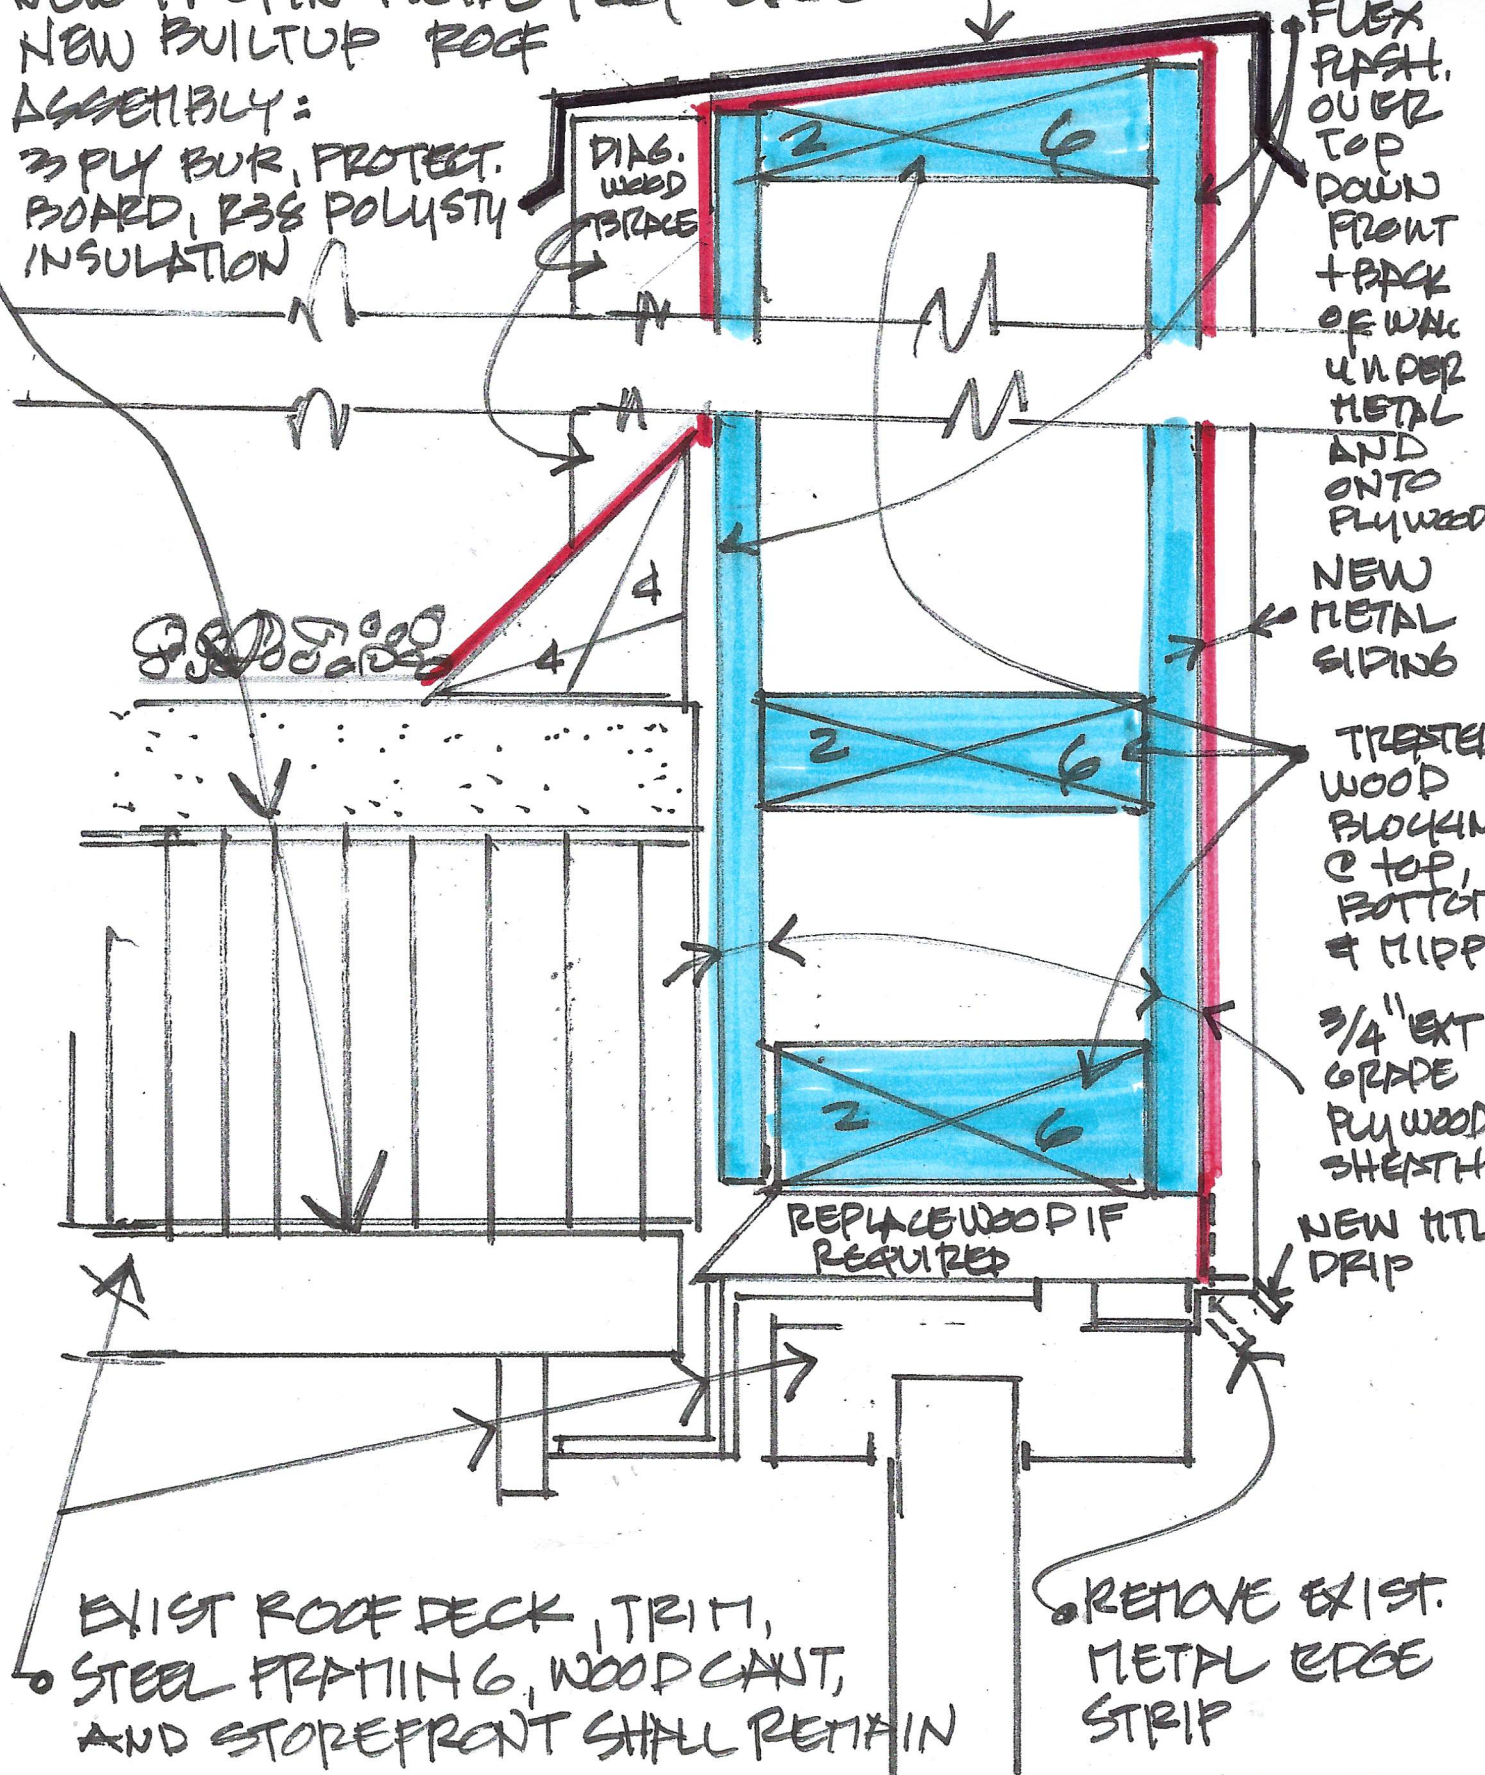 NEW BUILTUP ROOF
ASSEMBLY:
3 PLY BUR, PROTECT.
BOARD, R38 POLYSTY
INSULATION
DIAG.
WOOD
BRACE
2 6
FLEX
FLASH.
OVER
TOP
DOWN
FRONT
+BACK
OF WALL
UNDER
METAL
AND
ONTO
PLYWOOD
4
4
NEW
METAL
SIDING
2 6
TREATED
WOOD
BLOCKIN
@ TOP,
BOTTOM
& MIDD
2 6
3/4" EXT
GRADE
PLYWOOD
SHEATH
REPLACE WOOD IF
REQUIRED
NEW MTL
DRIP
EXIST ROOF DECK, TRIM,
STEEL FRAMING, WOOD CANT,
AND STOREFRONT SHALL REMAIN
REMOVE EXIST.
METAL EDGE
STRIP